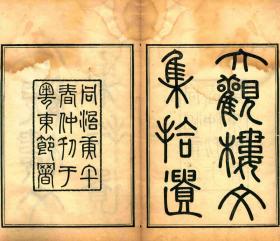 大觀樓文
集拾遺
同治庚午
春仲刊于
粵東節署